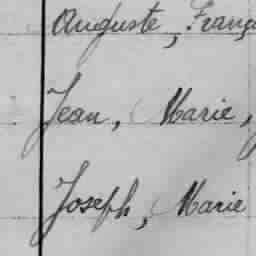 Auguste, Franç
Jean, Marie,
Joseph, Marie